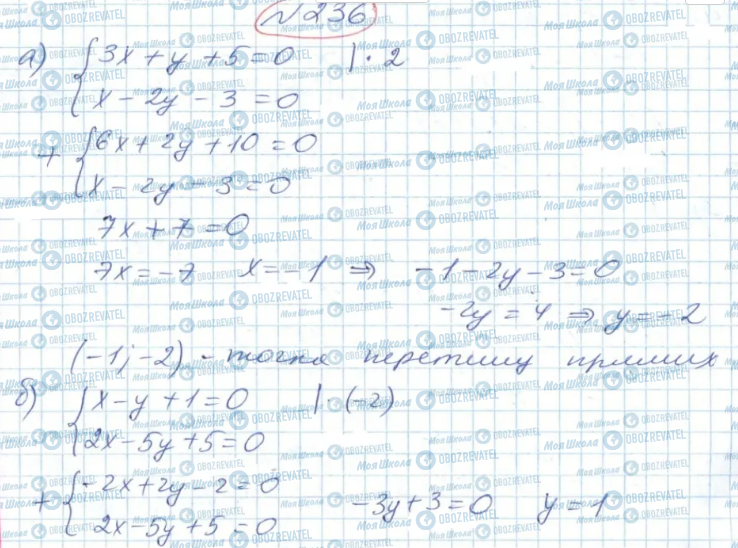 №236
а) {3x + y + 5 = 0 | · 2
{x - 2y - 3 = 0
+ {6x + 2y + 10 = 0
{x - 2y - 3 = 0
7x + 7 = 0
7x = -7 x = -1 ⇒ -1 - 2y - 3 = 0
-2y = 4 ⇒ y = -2
(-1; -2) - точка перетину прямих
б) {x - y + 1 = 0 | · (-2)
{2x - 5y + 5 = 0
+ {-2x + 2y - 2 = 0 -3y + 3 = 0 y = 1
{2x - 5y + 5 = 0
Моя Школа OBOZREVATEL